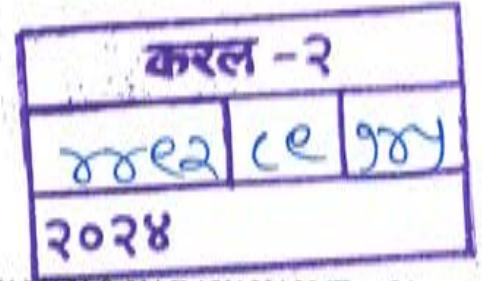 करल - २
४४९२ ८९ १४५
२०२४